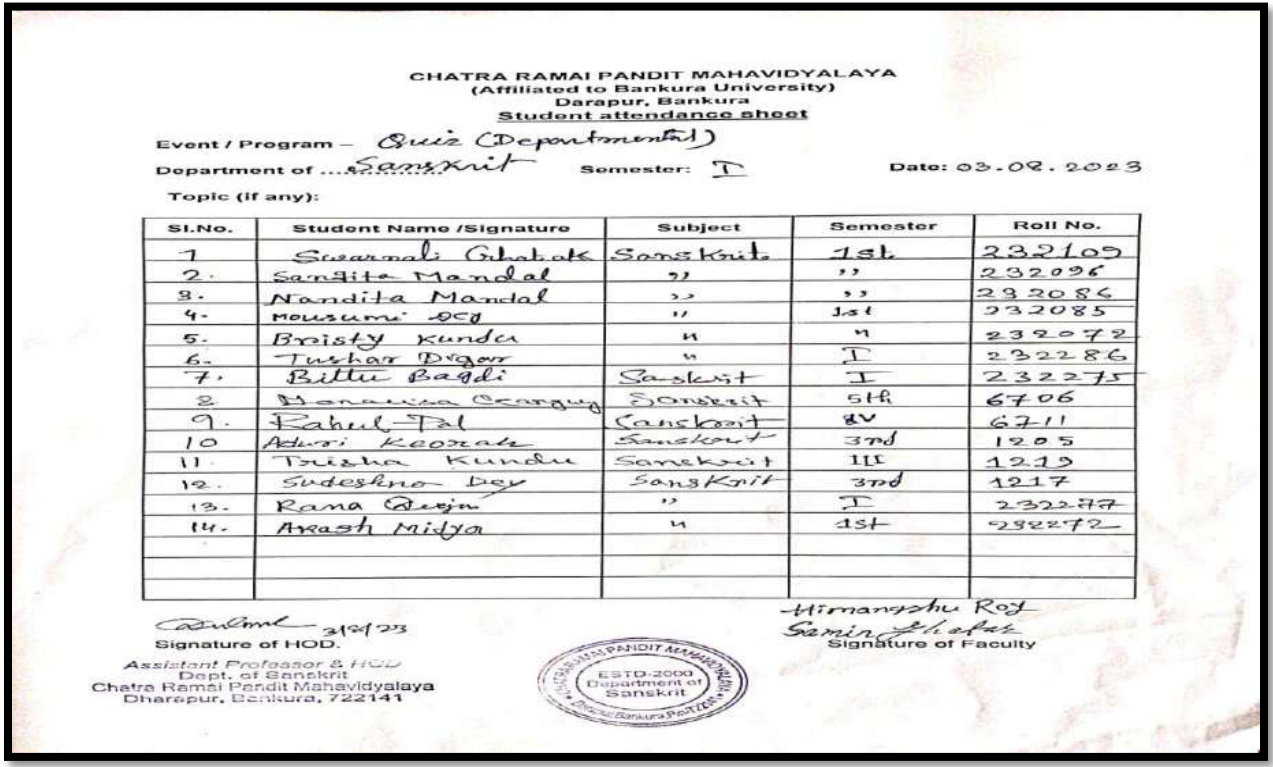 CHATRA RAMAI PANDIT MAHAVIDYALAYA
(Affiliated to Bankura University)
Darapur, Bankura
Student attendance sheet
Event / Program – Quiz (Departmental)
Department of ... Sanskrit Semester: I Date: 03.08.2023
Topic (if any):
Sl.No. Student Name /Signature Subject Semester Roll No.
1 Swarnali Ghatak Sanskrit 1st 232109
2. Sangita Mandal ,, ,, 232096
3. Nandita Mandal ,, ,, 232086
4. Mousumi Dey ,, 1st 232085
5. Bristy Kundu ,, ,, 232072
6. Tushar Digar ,, I 232286
7. Bittu Bagdi Saskrit I 232275
8 Sanskrit 5th 6706
9. Rahul Pal Sanskrit 6711
10 Aduri Keorah Sanskrit 3rd 1205
11. Trisha Kundu Sanskrit III 1219
12. Sudeshno Dey Sanskrit 3rd 1217
13. Rana ,, I 232277
14. Akash Midya ,, 1st 232272
Himangshu Roy
3/8/23 Samir Ghatak
Signature of HOD. Signature of Faculty
Assistant Professor & HOD
Dept. of Sanskrit
Chatra Ramai Pandit Mahavidyalaya
Dharapur, Bankura, 722141
CHATRA RAMAI PANDIT MAHAVIDYALAYA
ESTD-2000
Department of
Sanskrit